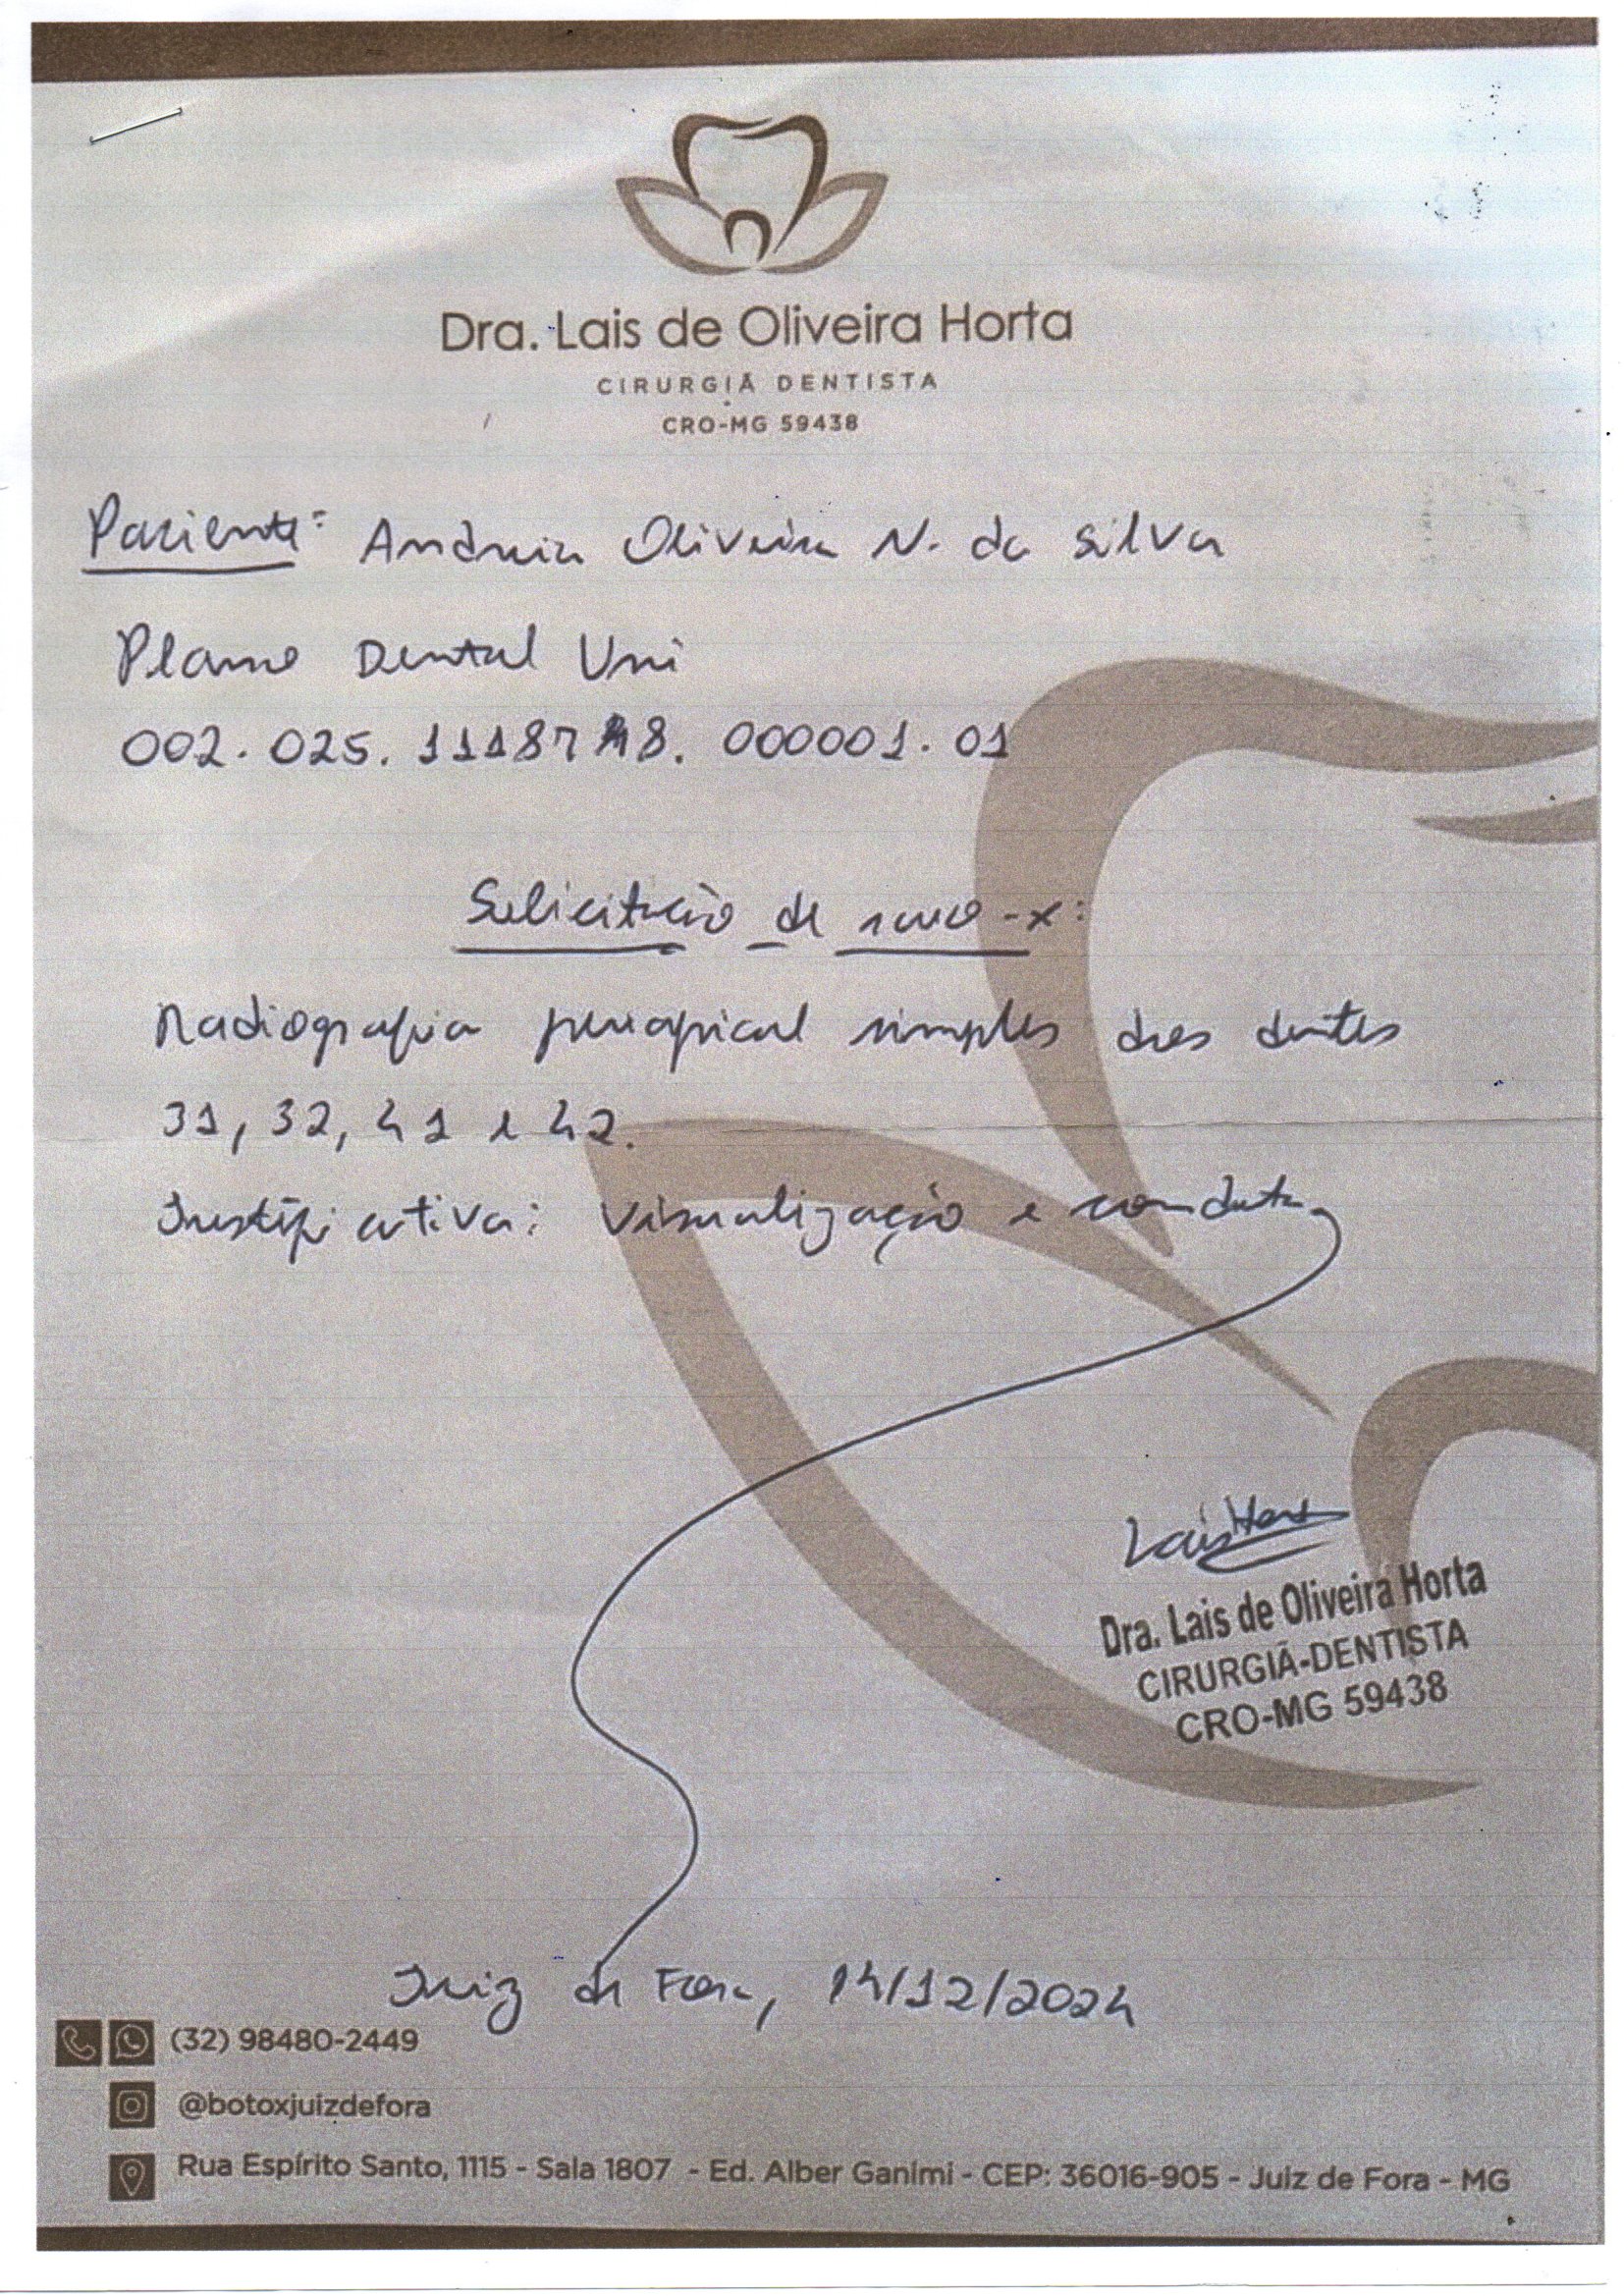 Dra. Lais de Oliveira Horta
CIRURGIÃ DENTISTA
CRO-MG 59438
Paciente: Andreia Oliveira N. da Silva
Plano Dental Uni
002.025. . 000001.01
Solicitação de raio-x:
Radiografia periapical simples dos dentes
31, 32, 41 e 42.
Justificativa: Visualização e conduta
Lais Horta
Dra. Lais de Oliveira Horta
CIRURGIÃ-DENTISTA
CRO-MG 59438
Juiz de Fora, 14/12/2024
(32) 98480-2449
@botoxjuizdefora
Rua Espírito Santo, 1115 - Sala 1807 - Ed. Alber Ganimi - CEP: 36016-905 - Juiz de Fora - MG